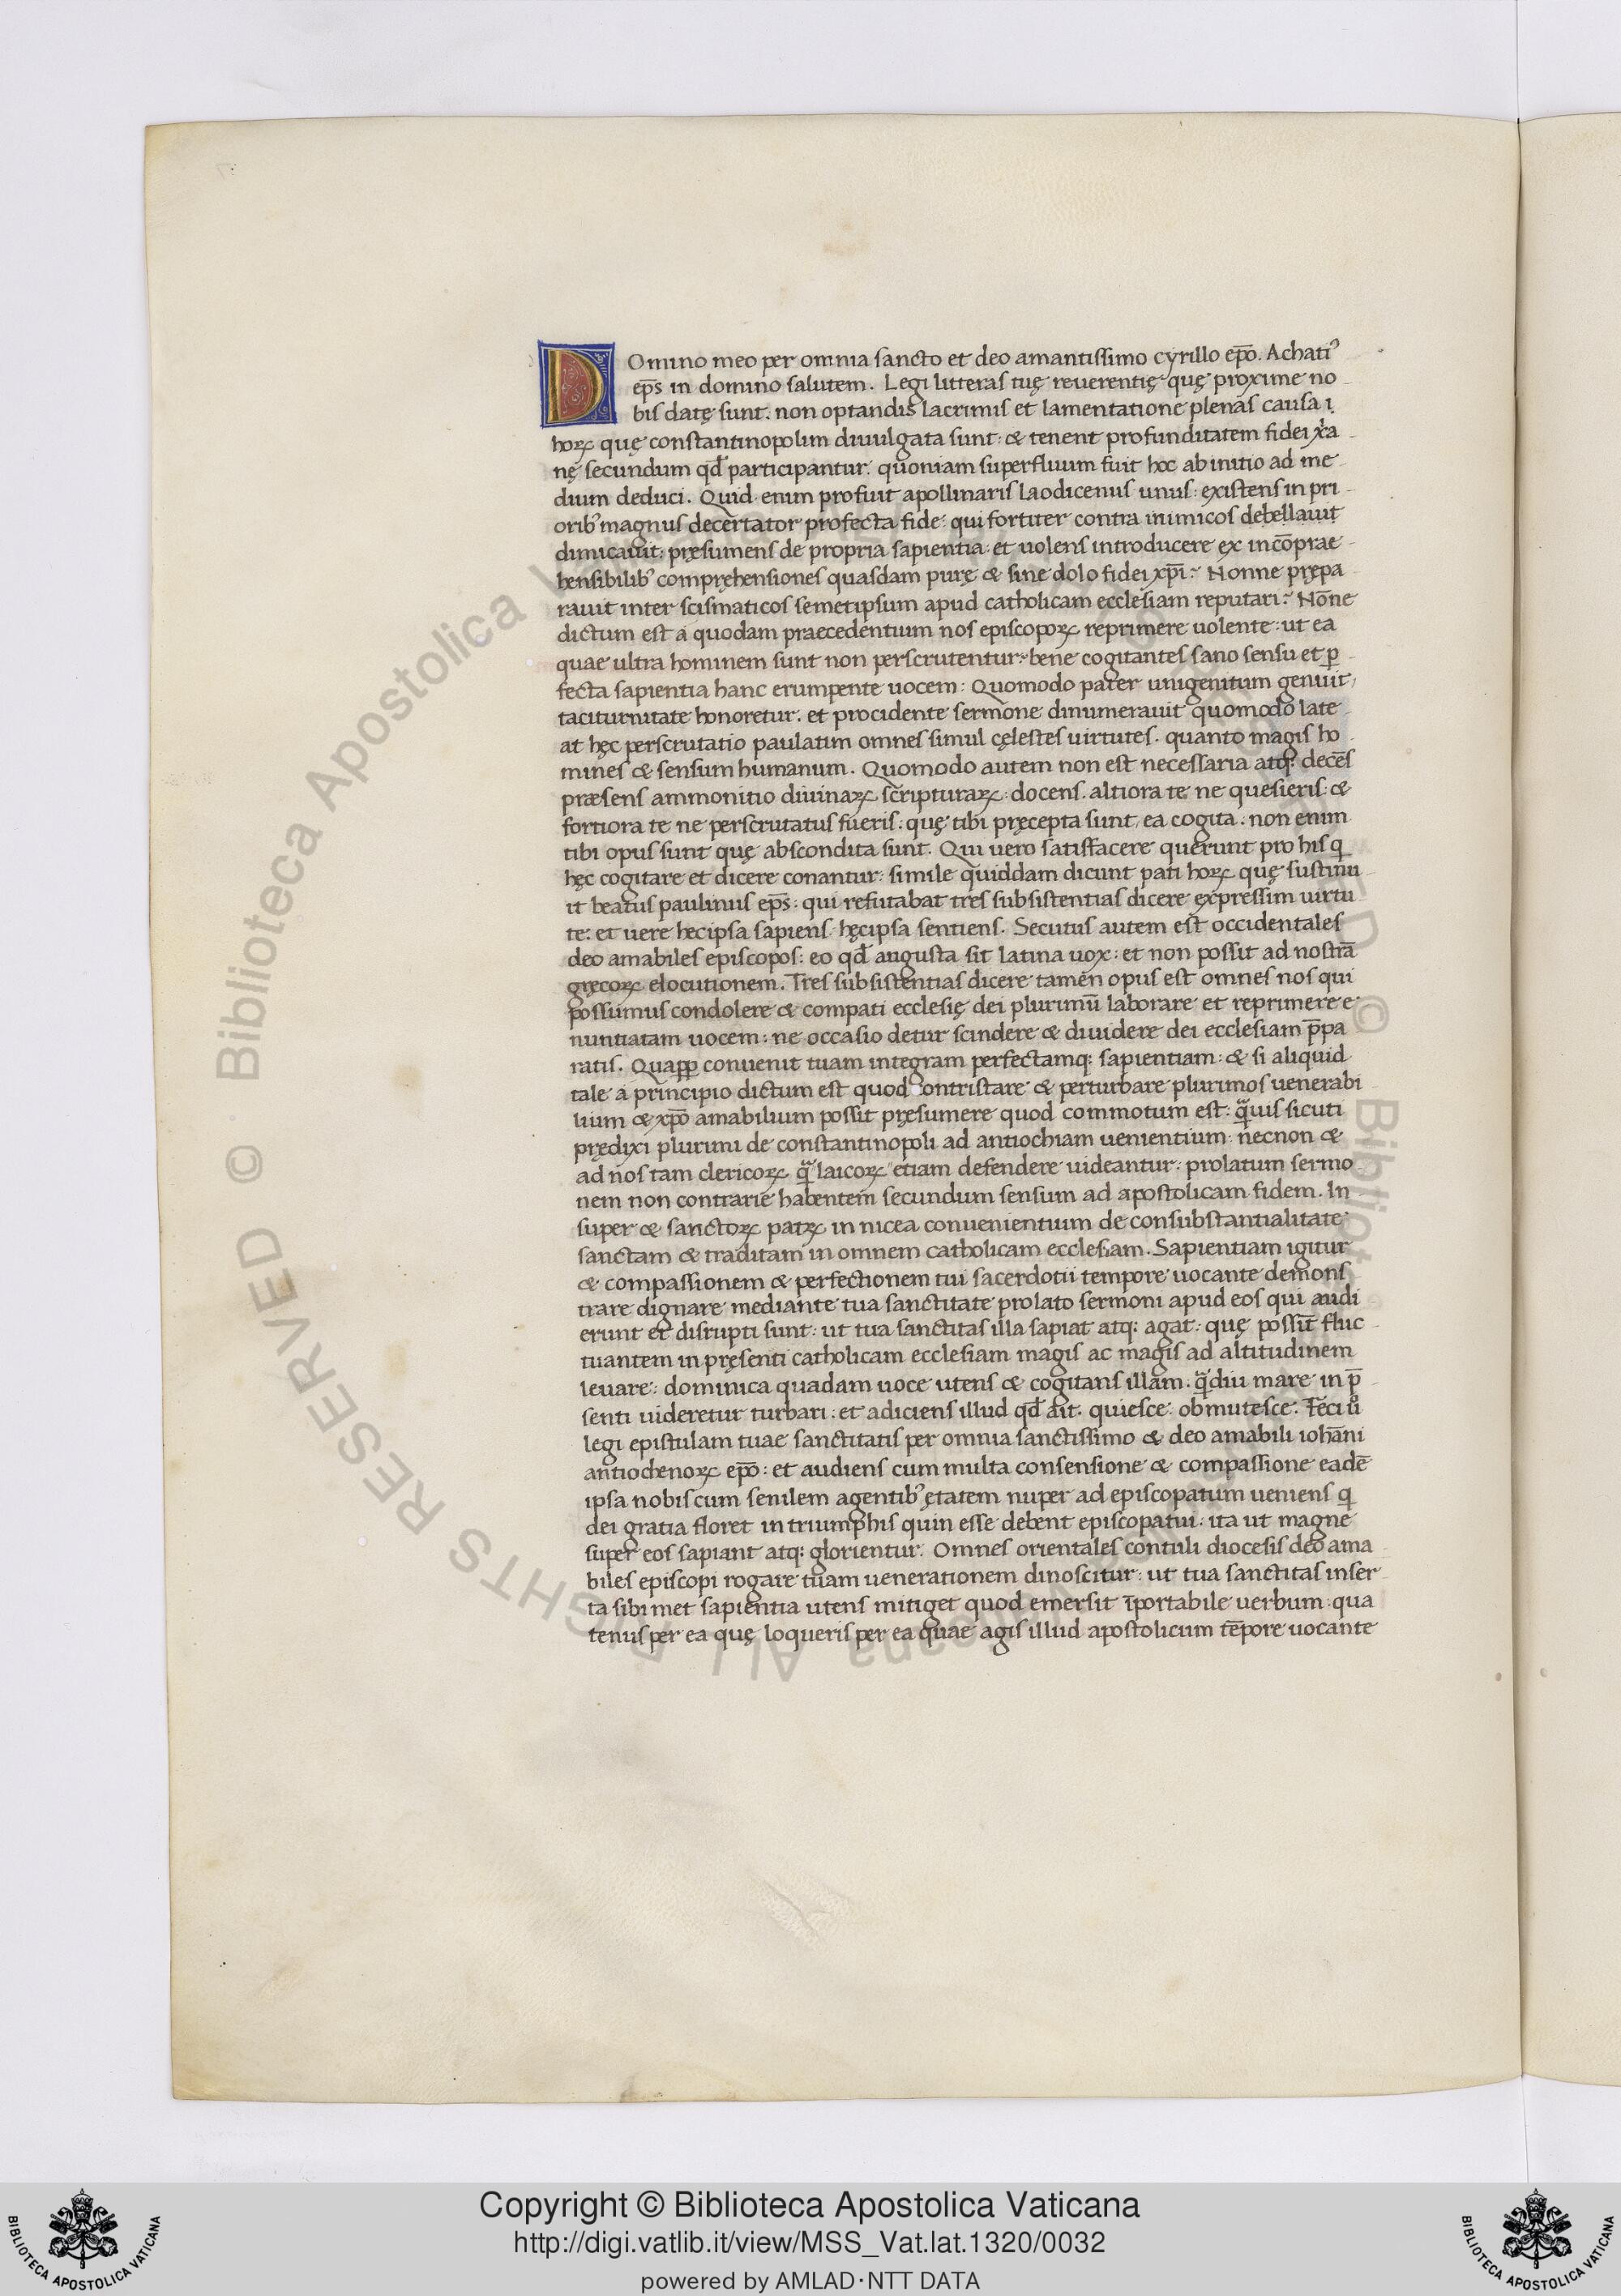 Domino meo per omnia sancto et deo amantissimo cyrillo ep̄o. Achatiꝰ
ep̄s in domino salutem. Legi litteras tuę reuerentię quę proxime no
bis datę sunt. non optandis lacrimis et lamentatione plenas causa i
hoꝝ quę constantinopolim diuulgata sunt: & tenent profunditatem fidei xr̄a
nę secundum qđ participantur. quoniam superfluum fuit hoc ab initio ad me
dium deduci. Quid enim profuit apollinaris laodicenus unus: existens in pri
oribꝰ magnus decertator profecta fide: qui fortiter contra inimicos debellauit
dimicauit: pręsumens de propria sapientia: et uolens introducere ex incōprae
hensibilibꝰ compręhensiones quasdam purę & sine dolo fidei xp̄i: Nonne prępa
rauit inter scismaticos semetipsum apud catholicam ecclesiam reputari: Nōne
dictum est a quodam praecedentium nos episcopoꝝ reprimere uolente: ut ea
quae ultra hominem sunt non perscrutentur: bene cogitantes sano sensu et ꝑ
fecta sapientia hanc erumpente uocem: Quomodo pater unigenitum genuit,
taciturnitate honoretur. et procidente sermone dinumerauit quomodo late
at hęc perscrutatio paulatim omnes simul cęlestes uirtutes. quanto magis ho
mines & sensum humanum. Quomodo autem non est necessaria atq; decēs
præsens ammonitio diuinaꝝ scripturaꝝ: docens. altiora te ne quesieris: &
fortiora te ne perscrutatus fueris: quę tibi pręcepta sunt, ea cogita. non enim
tibi opus sunt quę abscondita sunt. Qui uero satisfacere querunt pro his q
hęc cogitare et dicere conantur: simile quiddam dicunt pati hoꝝ quę sustinu
it beatus paulinus ep̄s: qui refutabat tres subsistentias dicere expressim uirtu
te: et uere hecipsa sapiens hęcipsa sentiens. Secutus autem est occidentales
deo amabiles episcopos: eo qđ angusta sit latina uox: et non possit ad nostrā
gręcoꝝ elocutionem. Tres subsistentias dicere tamen opus est omnes nos qui
possumus condolere & compati ecclesię dei plurimū laborare et reprimere e
nuntiatam uocem: ne occasio detur scindere & diuidere dei ecclesiam p̄pa
ratis. Quaꝓp conuenit tuam integram perfectamq; sapientiam: & si aliquid
tale a principio dictum est quod contristare & perturbare plurimos uenerabi
lium & xp̄o amabilium possit pręsumere quod commotum est: q̄uis sicuti
prędixi plurimi de constantinopoli ad antiochiam uenientium: necnon &
ad nos tam clericoꝝ q̄ laicoꝝ etiam defendere uideantur: prolatum sermo
nem non contrarie habentem secundum sensum ad apostolicam fidem. In
super & sanctoꝝ patꝝ in nicea conuenientium de consubstantialitate
sanctam & traditam in omnem catholicam ecclesiam. Sapientiam igitur
& compassionem & perfectionem tui sacerdotii tempore uocante demons
trare dignare mediante tua sanctitate prolato sermoni apud eos qui audi
erunt et disrupti sunt: ut tua sanctitas illa sapiat atq; agat: quę possit fluc
tuantem in pręsenti catholicam ecclesiam magis ac magis ad altitudinem
leuare: dominica quadam uoce utens & cogitans illam. q̄diu mare in p̄
senti uideretur turbari: et adiciens illud qđ ait: quiesce: obmutesce. Feci ů
legi epistulam tuae sanctitatis per omnia sanctissimo & deo amabili iohāni
antiochenoꝝ ep̄o: et audiens cum multa consensione & compassione eadē
ipsa nobiscum senilem agentibꝰ ętatem nuper ad episcopatum ueniens q
dei gratia floret in triumphis quin esse debent episcopatui: ita ut magne
super eos sapiant atq; glorientur. Omnes orientales contuli diocesis deo ama
biles episcopi rogare tuam uenerationem dinoscitur: ut tua sanctitas inser
ta sibi met sapientia utens mitiget quod emersit īportabile uerbum: qua
tenus per ea quę loqueris per ea quae agis illud apostolicum tēpore uocante
© Biblioteca Apostolica Vaticana ALL RIGHTS RESERVED
Copyright © Biblioteca Apostolica Vaticana
http://digi.vatlib.it/view/MSS_Vat.lat.1320/0032
powered by AMLAD·NTT DATA
BIBLIOTECA APOSTOLICA VATICANA
BIBLIOTECA APOSTOLICA VATICANA